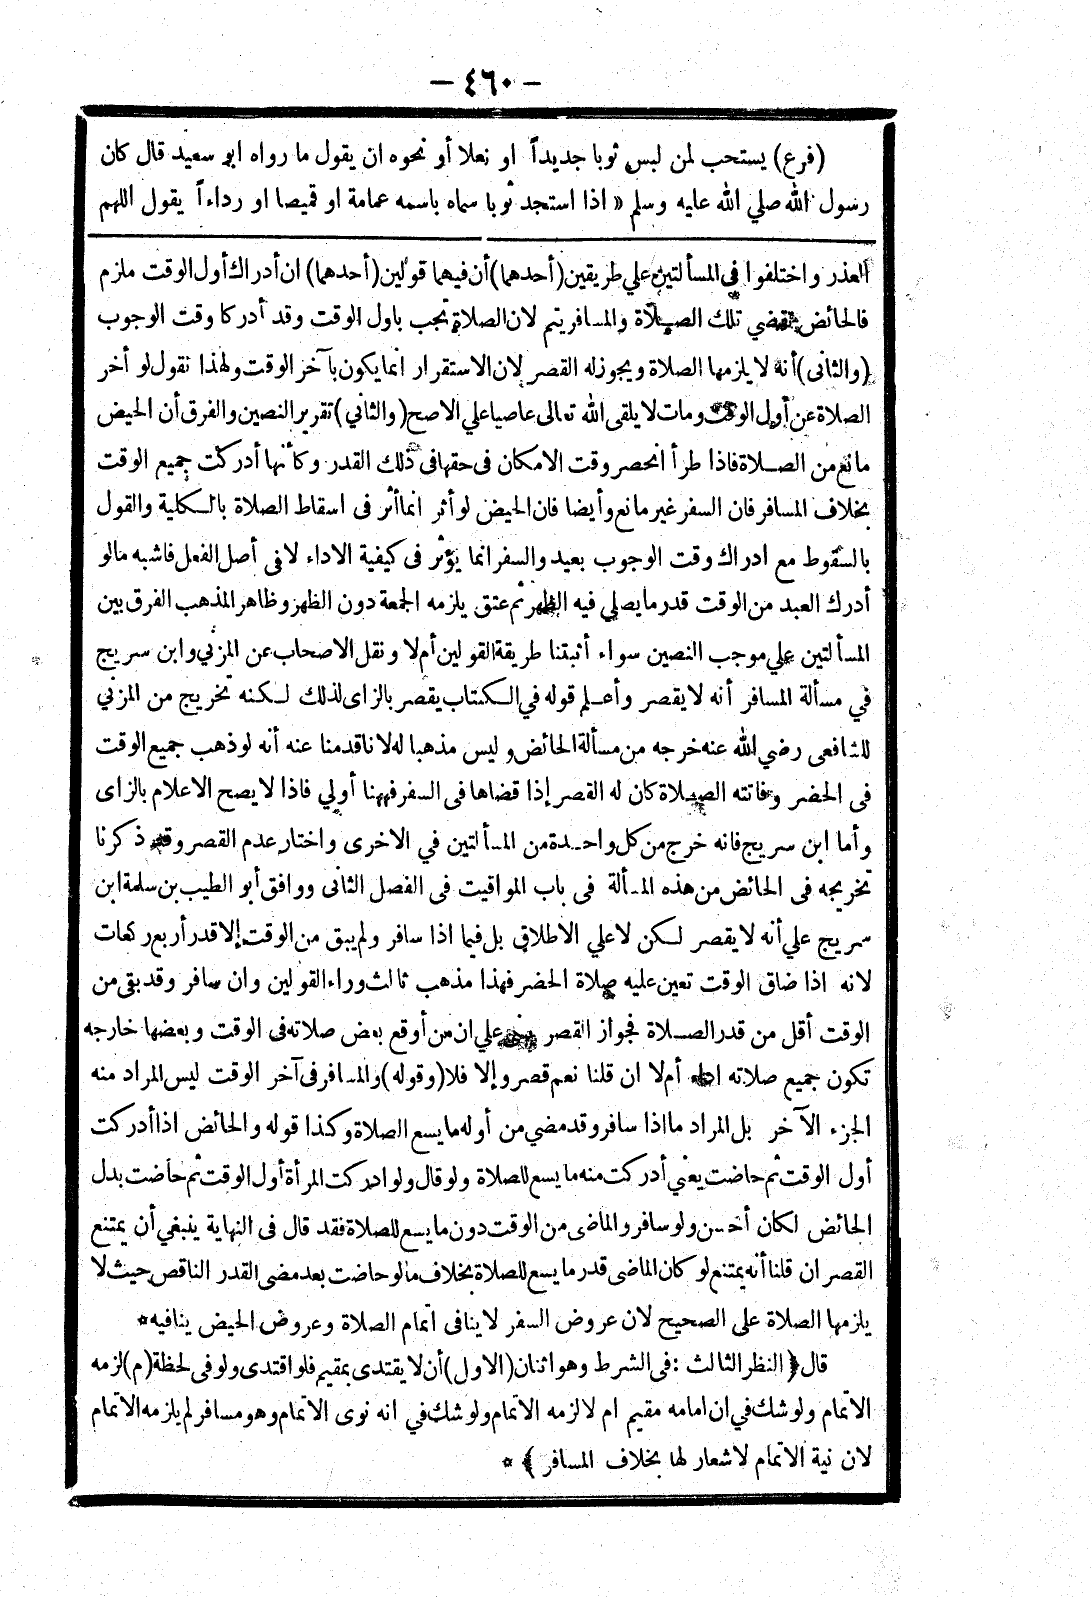 — ٤٦٠ —
(فرع) يستحب لمن لبس ثوبا جديداً او نعلا أو نحوه ان يقول ما رواه ابو سعيد قال كان
رسول الله صلي الله عليه وسلم « اذا استجد ثوبا سماه باسمه عمامة او قميصا او رداءاً يقول اللهم
العذر واختلفوا في المسألتين علي طريقين (أحدهما) أن فيهما قولين (أحدهما) ان أدراك أول الوقت ملزم
فالحائض تقضي تلك الصلاة والمسافر يتم لان الصلاة تجب باول الوقت وقد أدركا وقت الوجوب
(والثانى) أنه لا يلزمها الصلاة ويجوز له القصر لان الاستقرار انما يكون بآخر الوقت ولهذا نقول لو أخر
الصلاة عن أول الوقت ومات لا يلقى الله تعالى عاصيا علي الاصح (والثاني) تقرير النصين والفرق أن الحيض
مانع من الصلاة فاذا طرأ انحصر وقت الامكان فى حقها فى ذلك القدر وكأنها أدركت جميع الوقت
بخلاف المسافر فان السفر غير مانع وأيضا فان الحيض لو أثر انما أثر فى اسقاط الصلاة بالكلية والقول
بالسقوط مع ادراك وقت الوجوب بعيد والسفر انما يؤثر فى كيفية الاداء لا فى أصل الفعل فاشبه مالو
أدرك العبد من الوقت قدر ما يصلي فيه الظهر ثم عتق يلزمه الجمعة دون الظهر وظاهر المذهب الفرق بين
المسألتين علي موجب النصين سواء أثبتنا طريقة القولين أم لا ونقل الاصحاب عن المزني وابن سريج
في مسألة المسافر أنه لا يقصر وأعلم قوله في الكتاب يقصر بالزاى لذلك لكنه تخريج من المزني
للشافعى رضي الله عنه خرجه من مسألة الحائض وليس مذهبا له لانا قدمنا عنه أنه لو ذهب جميع الوقت
فى الحضر وفاتته الصلاة كان له القصر إذا قضاها فى السفر فههنا أولي فاذا لا يصح الاعلام بالزاى
وأما ابن سريج فانه خرج من كل واحدة من المسألتين في الاخرى واختار عدم القصر وقد ذكرنا
تخريجه فى الحائض من هذه المسألة فى باب المواقيت فى الفصل الثانى ووافق أبو الطيب بن سلمة ابن
سريج علي أنه لا يقصر لكن لا علي الاطلاق بل فيما اذا سافر ولم يبق من الوقت إلا قدر أربع ركعات
لانه اذا ضاق الوقت تعين عليه صلاة الحضر فهذا مذهب ثالث وراء القولين وان سافر وقد بقى من
الوقت أقل من قدر الصلاة فجواز القصر علي ان من أوقع بعض صلاته فى الوقت وبعضها خارجه
تكون جميع صلاته اداء أم لا ان قلنا نعم قصر وإلا فلا (وقوله) والمسافر فى آخر الوقت ليس المراد منه
الجزء الآخر بل المراد ما اذا سافر وقد مضي من أوله ما يسع الصلاة وكذا قوله والحائض اذا أدركت
أول الوقت ثم حاضت يعني أدركت منه ما يسع للصلاة ولو قال ولو ادركت المرأة أول الوقت ثم حاضت بدل
الحائض لكان أحسن ولو سافر والماضى من الوقت دون ما يسع للصلاة فقد قال فى النهاية ينبغي أن يمتنع
القصر ان قلنا أنه يمتنع لو كان الماضى قدر ما يسع للصلاة بخلاف مالو حاضت بعد مضى القدر الناقص حيث لا
يلزمها الصلاة على الصحيح لان عروض السفر لا ينافى اتمام الصلاة وعروض الحيض ينافيه *
قال ﴿ النظر الثالث : فى الشرط وهو اثنان (الاول) أن لا يقتدى بمقيم فلو اقتدى ولو فى لحظة (م) لزمه
الاتمام ولو شك في ان امامه مقيم ام لا لزمه الاتمام ولو شك في انه نوى الاتمام وهو مسافر لم يلزمه الاتمام
لان نية الاتمام لا شعار لها بخلاف المسافر ﴾ *